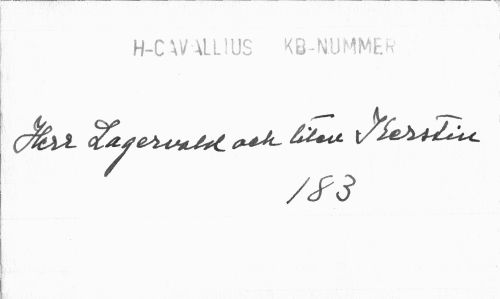 H-CAVALLIUS KB-NUMMER
Herr Lagervald och liten Kerstin
183